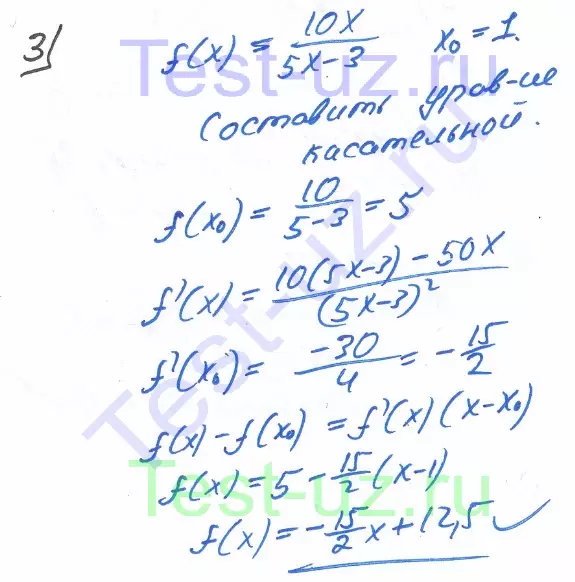 3) f(x) = 10x / 5x-3 x₀ = 1.
Составить урав-ие
касательной.
f(x₀) = 10 / 5-3 = 5
f'(x) = 10(5x-3) - 50x / (5x-3)²
f'(x₀) = -30 / 4 = - 15/2
f(x) - f(x₀) = f'(x) (x-x₀)
f(x) = 5 - 15/2 (x-1)
f(x) = - 15/2 x + 12,5 ✓
Test-uz.ru
Test-uz.ru
Test-uz.ru